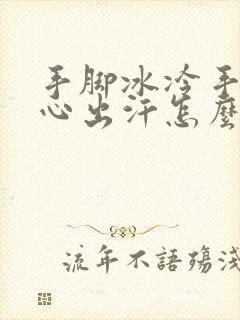 手脚冰冷手
心出汗怎麼
流年不語殤淺